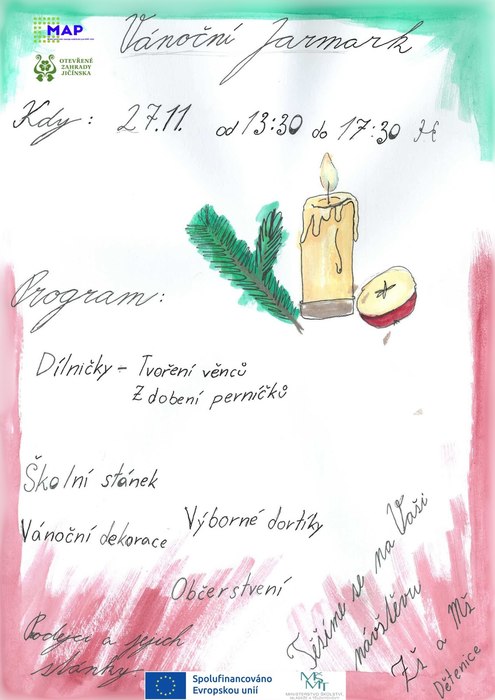 MAP
OTEVŘENÉ
ZAHRADY
JIČÍNSKA
Vánoční Jarmark
Kdy: 27.11. od 13:30 do 17:30 H
Program:
Dílničky - Tvoření věnců
Zdobení perníčků
Školní stánek
Vánoční dekorace
Výborné dortíky
Občerstvení
Prodejci a jejich
stánky
Těšíme se na Vaši
návštěvu
ZŠ a MŠ
Dětenice
Spolufinancováno
Evropskou unií
MINISTERSTVO ŠKOLSTVÍ
MLÁDEŽE A TĚLOVÝCHOVY